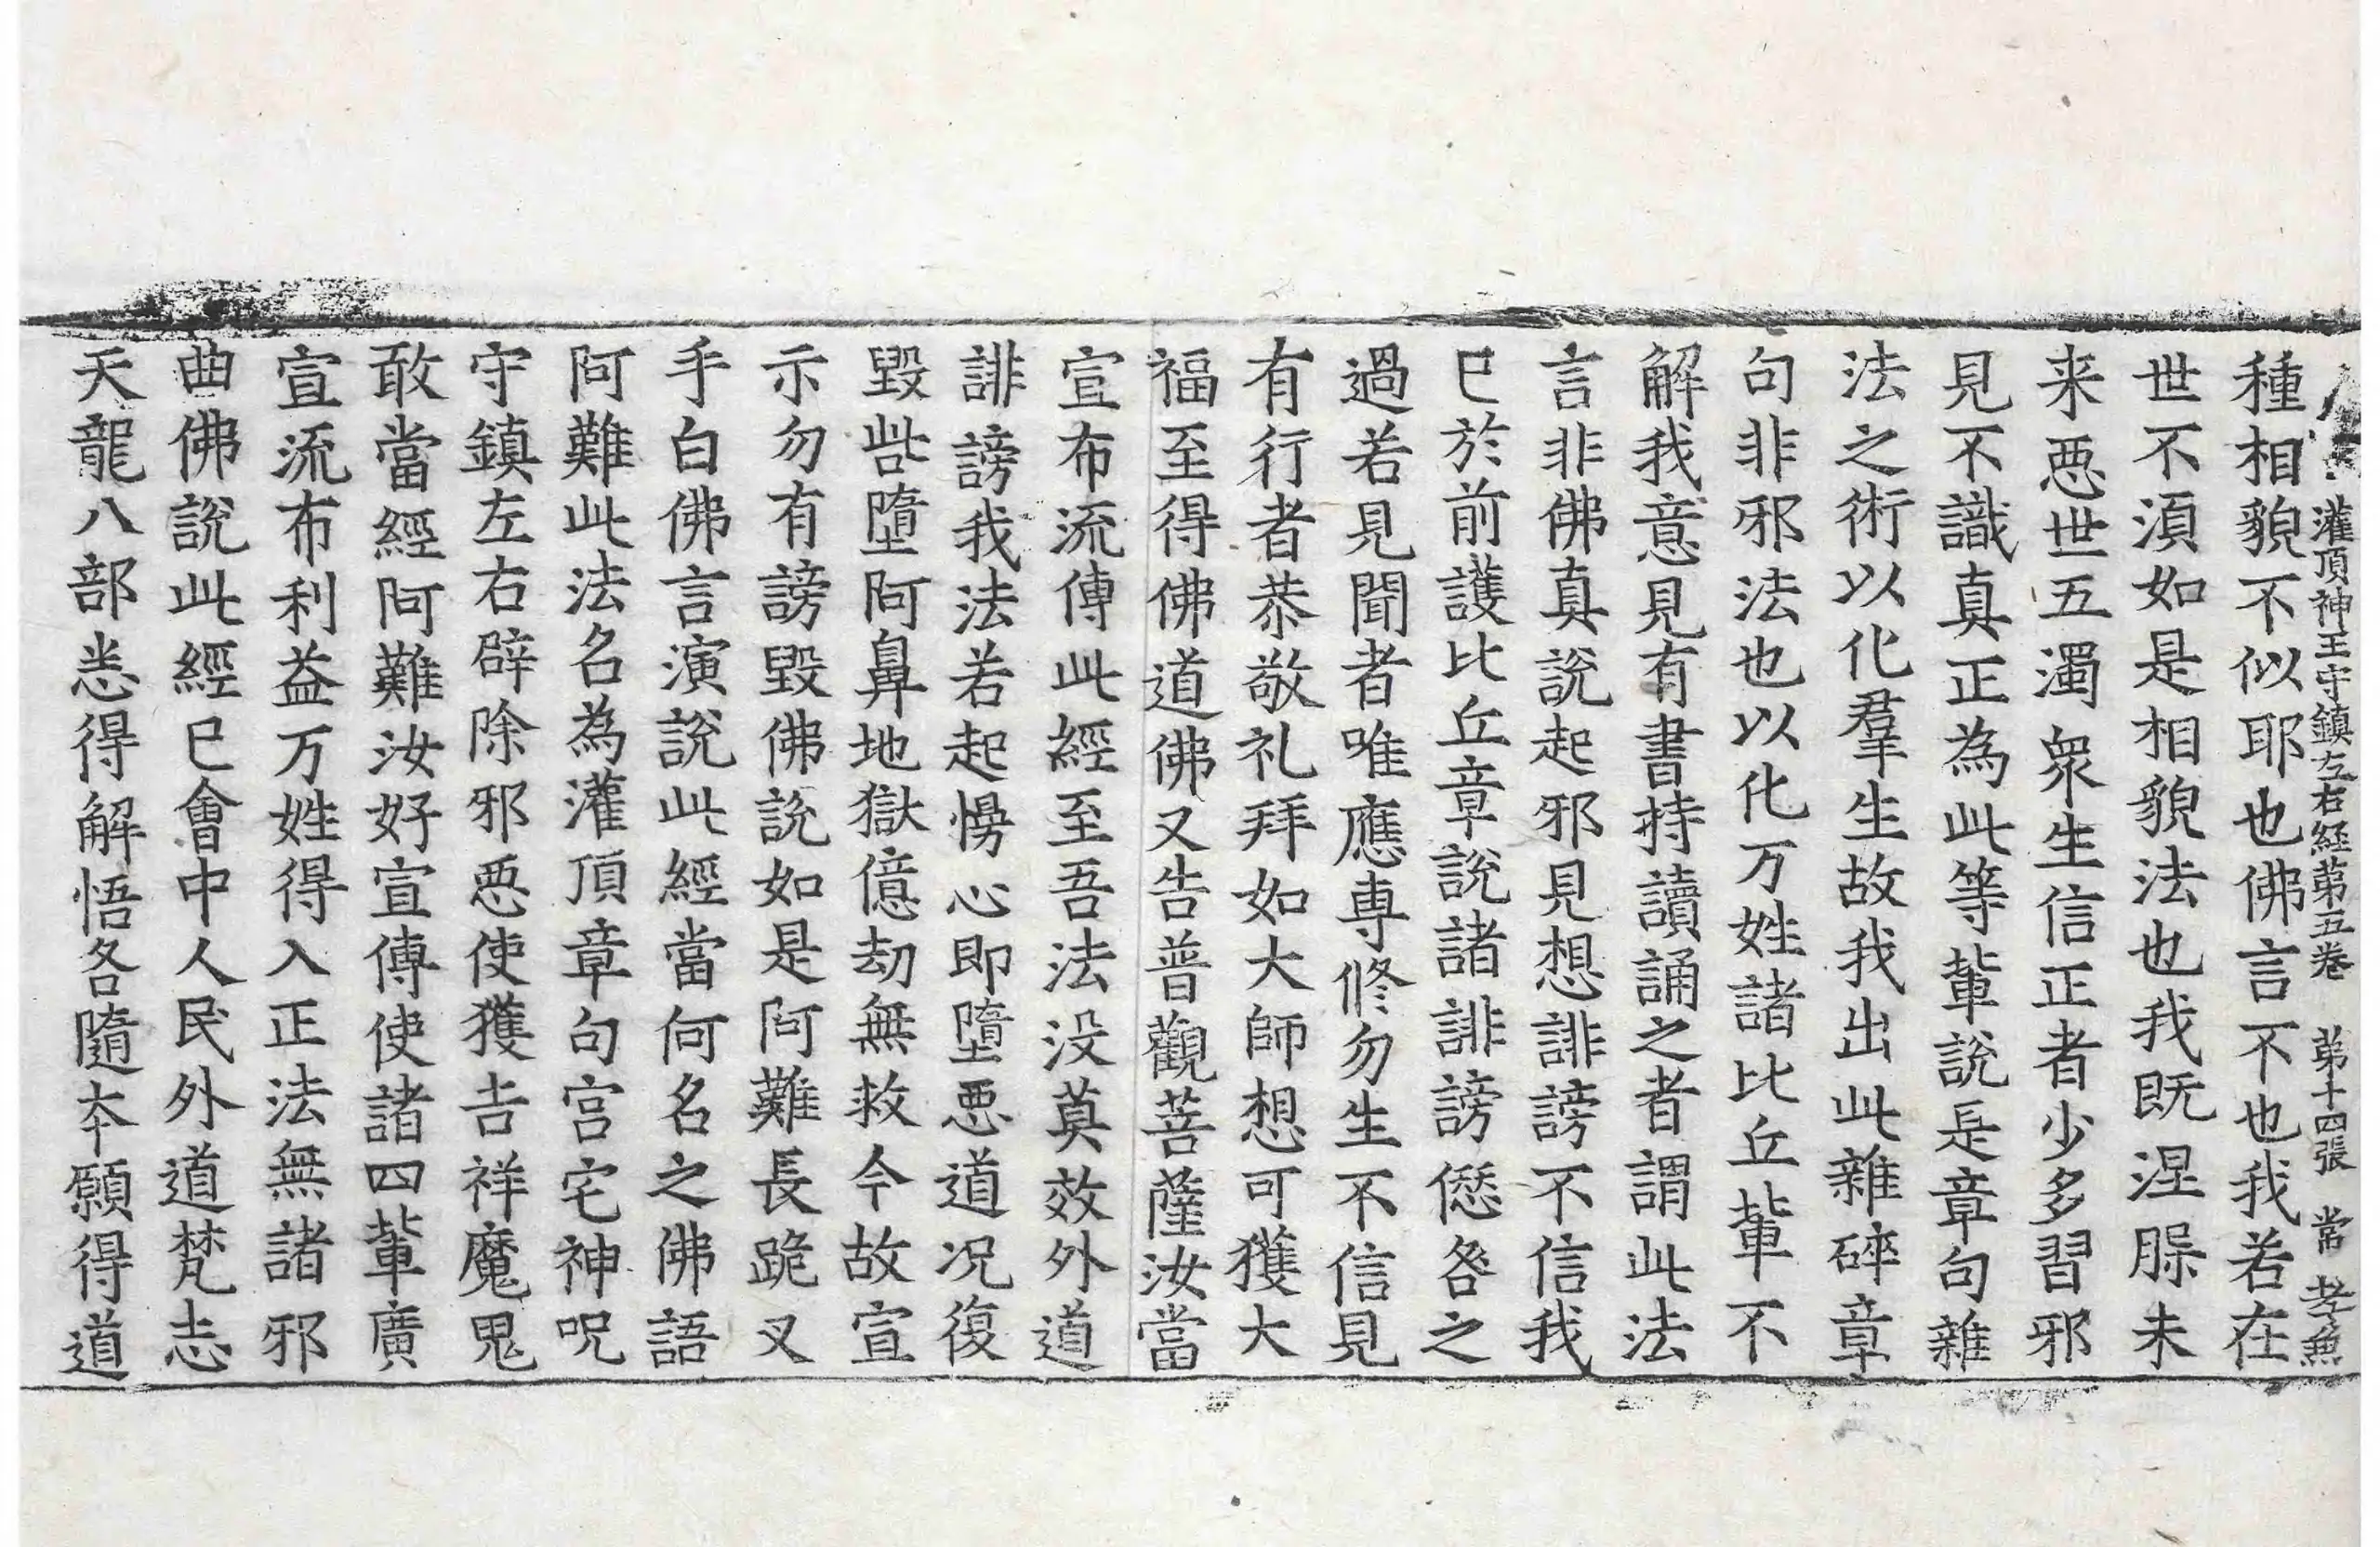 灌頂神王守鎮左右經第五卷　第十四張　常　孝兼
種相貌不似耶也佛言不也我若在
世不湏如是相貌法也我既涅槃未
来惡世五濁衆生信正者少多習邪
見不識真正為此等輩說是章句雜
法之術以化羣生故我出此雜碎章
句非邪法也以化万姓諸比丘輩不
解我意見有書持讀誦之者謂此法
言非佛真說起邪見想誹謗不信我
已於前護比丘章說諸誹謗愆咎之
過若見聞者唯應專修勿生不信見
有行者恭敬礼拜如大師想可獲大
福至得佛道佛又告普觀菩薩汝當
宣布流傳此經至吾法没莫效外道
誹謗我法若起慢心即墮惡道况復
毀呰墮阿鼻地獄億劫無救今故宣
示勿有謗毀佛說如是阿難長跪叉
手白佛言演說此經當何名之佛語
阿難此法名為灌頂章句宫宅神呪
守鎮左右辟除邪惡使獲吉祥魔鬼
敢當經阿難汝好宣傳使諸四輩廣
宣流布利益万姓得入正法無諸邪
曲佛說此經已會中人民外道梵志
天龍八部悉得解悟各隨本願得道